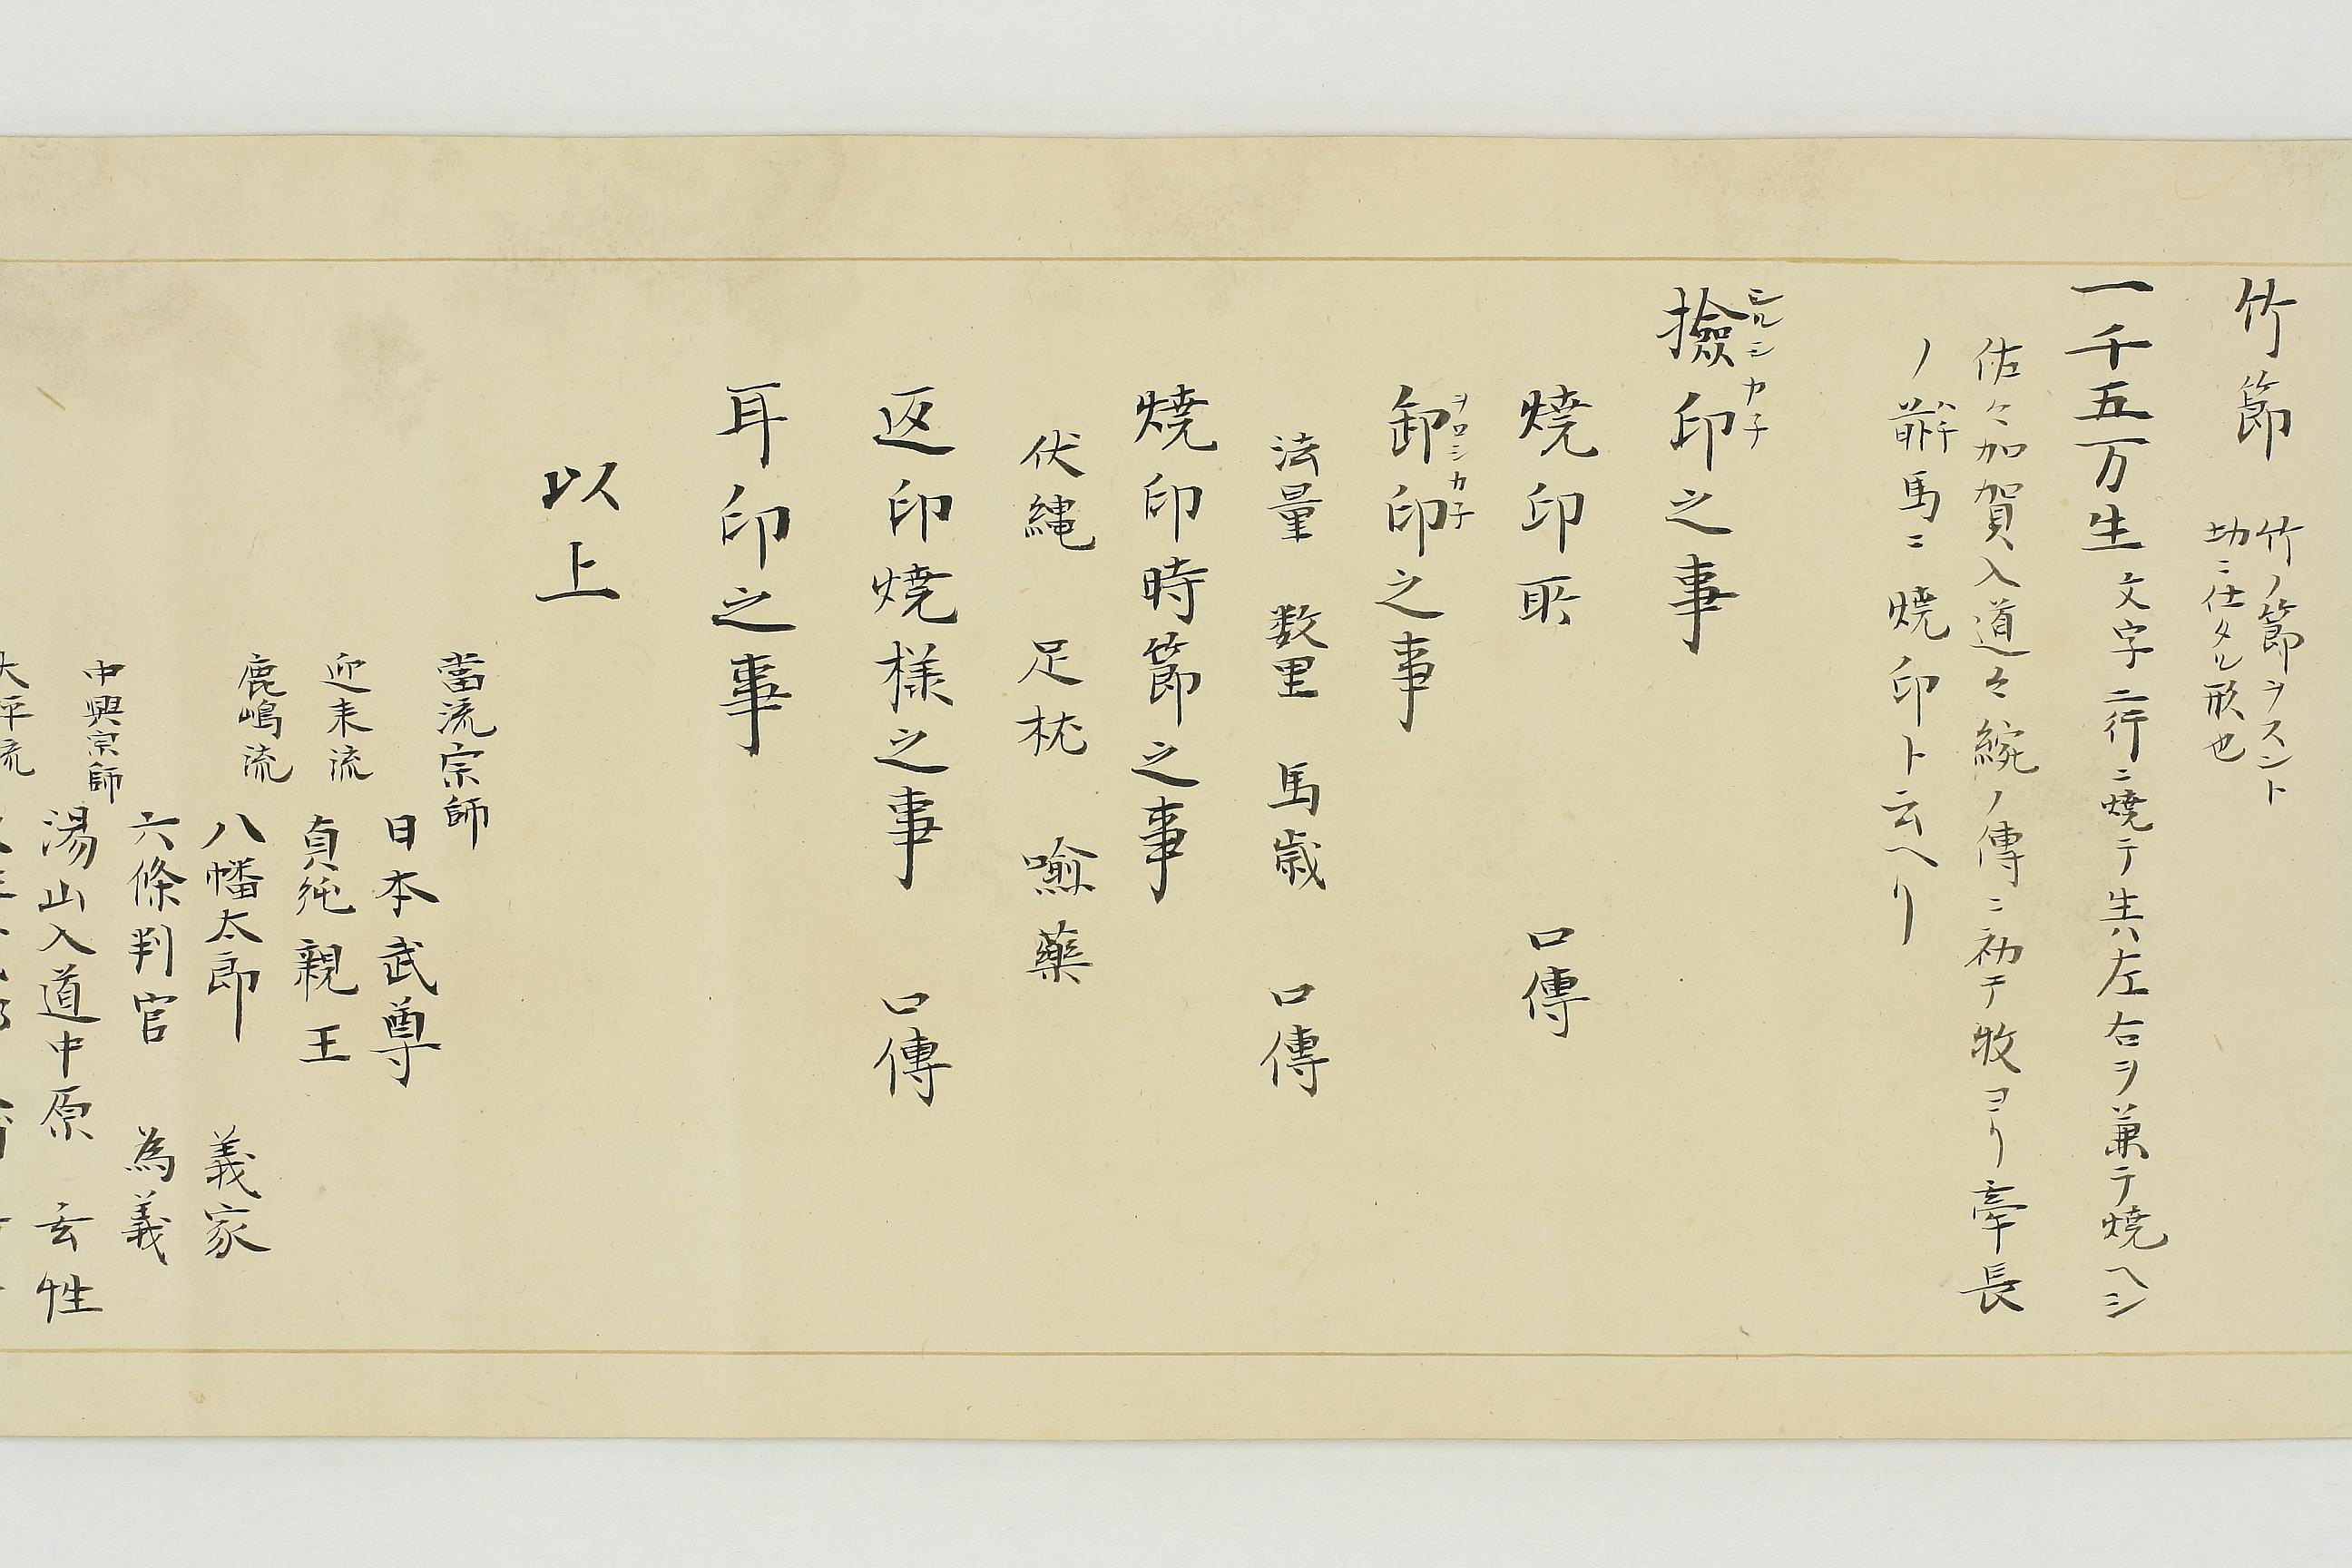 竹節
竹ノ節ヲスント
切ニ仕タル形也
一千五万生 文字二行ニ焼テ生ハ左右ヲ兼テ焼ヘシ
佐々加賀入道々綩ノ傳ニ初テ牧ヨリ牽長
ノ馬ニ焼印ト云ヘリ
撿印之事
シルシカ子
焼印所 口傳
卸印之事
ヲロシカ子
法量 数里 馬歳 口傳
焼印時節之事
伏縄 足枕 喩藥
返印焼様之事 口傳
耳印之事
以上
當流宗師
日本武尊
迎来流
貞純親王
鹿嶋流
八幡太郎 義家
六條判官 為義
中興宗師
湯山入道中原 玄性
大坪流